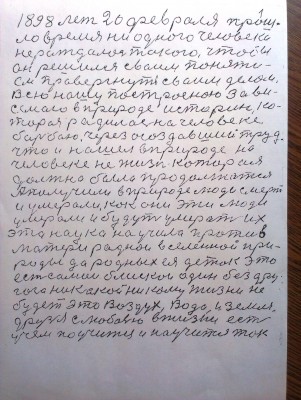 1898 лет 20 февраля прош
ло время ни одного человека
не раждалося такого, чтобы
он решился своим поняти
ем правергнути своим делом.
Всю нашу построеною Зави
смаго в природе историю, ко
торая радилас на человеке
барбаю, через создавший труд.
что и нашел в природе на
человеке не жизн которая
должна была продолжатся
А получили в природе люди смерт
и умирали, как они эти люди
умирали и будут умират их
это наука научила против
матери радной вселенной при
роды да родных ея деток Это
ест самии близкои один без дру
гога никакой никому жизни не
будет это Воздух, Вода, и земля,
друзя с любовю в жизни ест
чем поучится и научится так